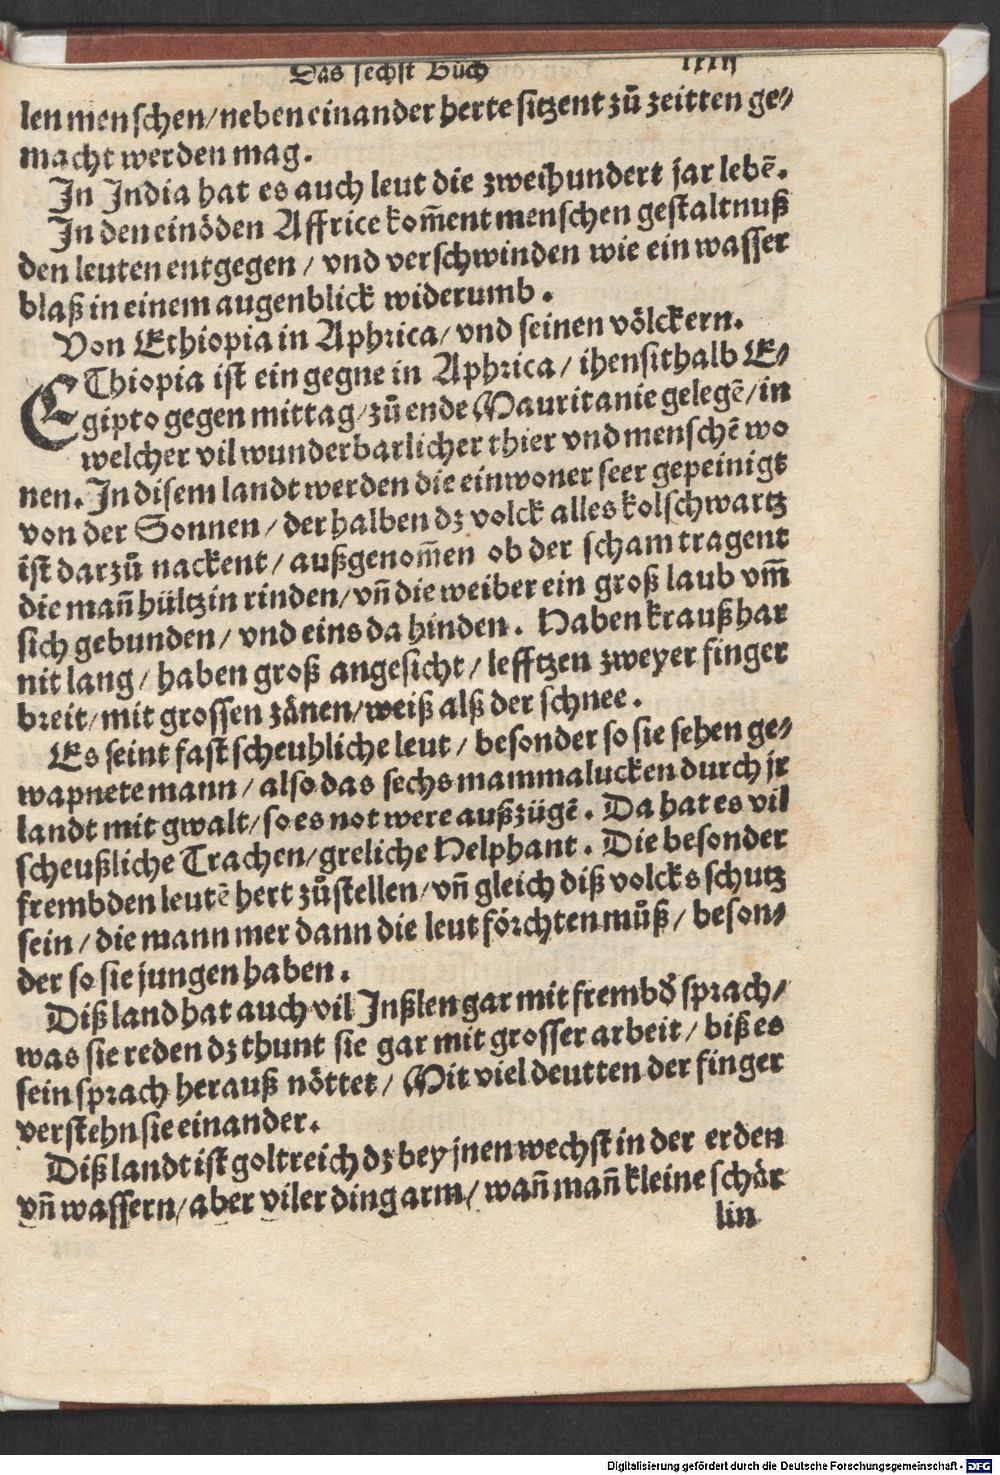 Das sechst Bůch lxxij
len menschen/neben einander herte sitzent zů zeitten ge⸗
macht werden mag.
In India hat es auch leut die zweihundert jar lebē.
In den einöden Affrice kom̄ent menschen gestaltnuß
den leuten entgegen / vnd verschwinden wie ein wasser
blaß in einem augenblick widerumb.
Von Ethiopia in Aphrica/ vnd seinen völckern.
EThiopia ist ein gegne in Aphrica / ihensithalb E⸗
gipto gegen mittag/zů ende Mauritanie gelegē/in
welcher vil wunderbarlicher thier vnd menschē wo
nen. In disem landt werden die einwoner seer gepeinigt
von der Sonnen / der halben dz volck alles kolschwartz
ist darzů nackent / außgenom̄en ob der scham tragent
die man̄ hültzin rinden/vn̄ die weiber ein groß laub vm̄
sich gebunden / vnd eins da hinden. Haben krauß har
nit lang / haben groß angesicht / lefftzen zweyer finger
breit/mit grossen zänen/weiß alß der schnee.
Es seint fast scheuhliche leut / besonder so sie sehen ge⸗
wapnete mann / also das sechs mammalucken durch jr
landt mit gwalt/so es not were außzügē. Da hat es vil
scheußliche Trachen/greliche Helphant. Die besonder
frembden leutē hert zůstellen/vn̄ gleich diß volcks schutz
sein / die mann mer dann die leut förchten můß / beson⸗
der so sie jungen haben.
Diß land hat auch vil Inßlen gar mit frembd' sprach/
was sie reden dz thunt sie gar mit grosser arbeit / biß es
sein sprach herauß nöttet / Mit viel deutten der finger
verstehn sie einander.
Diß landt ist goltreich dz bey jnen wechst in der erden
vn̄ wassern/aber viler ding arm/ wan̄ man̄ kleine schär
lin
Digitalisierung gefördert durch die Deutsche Forschungsgemeinschaft - DFG